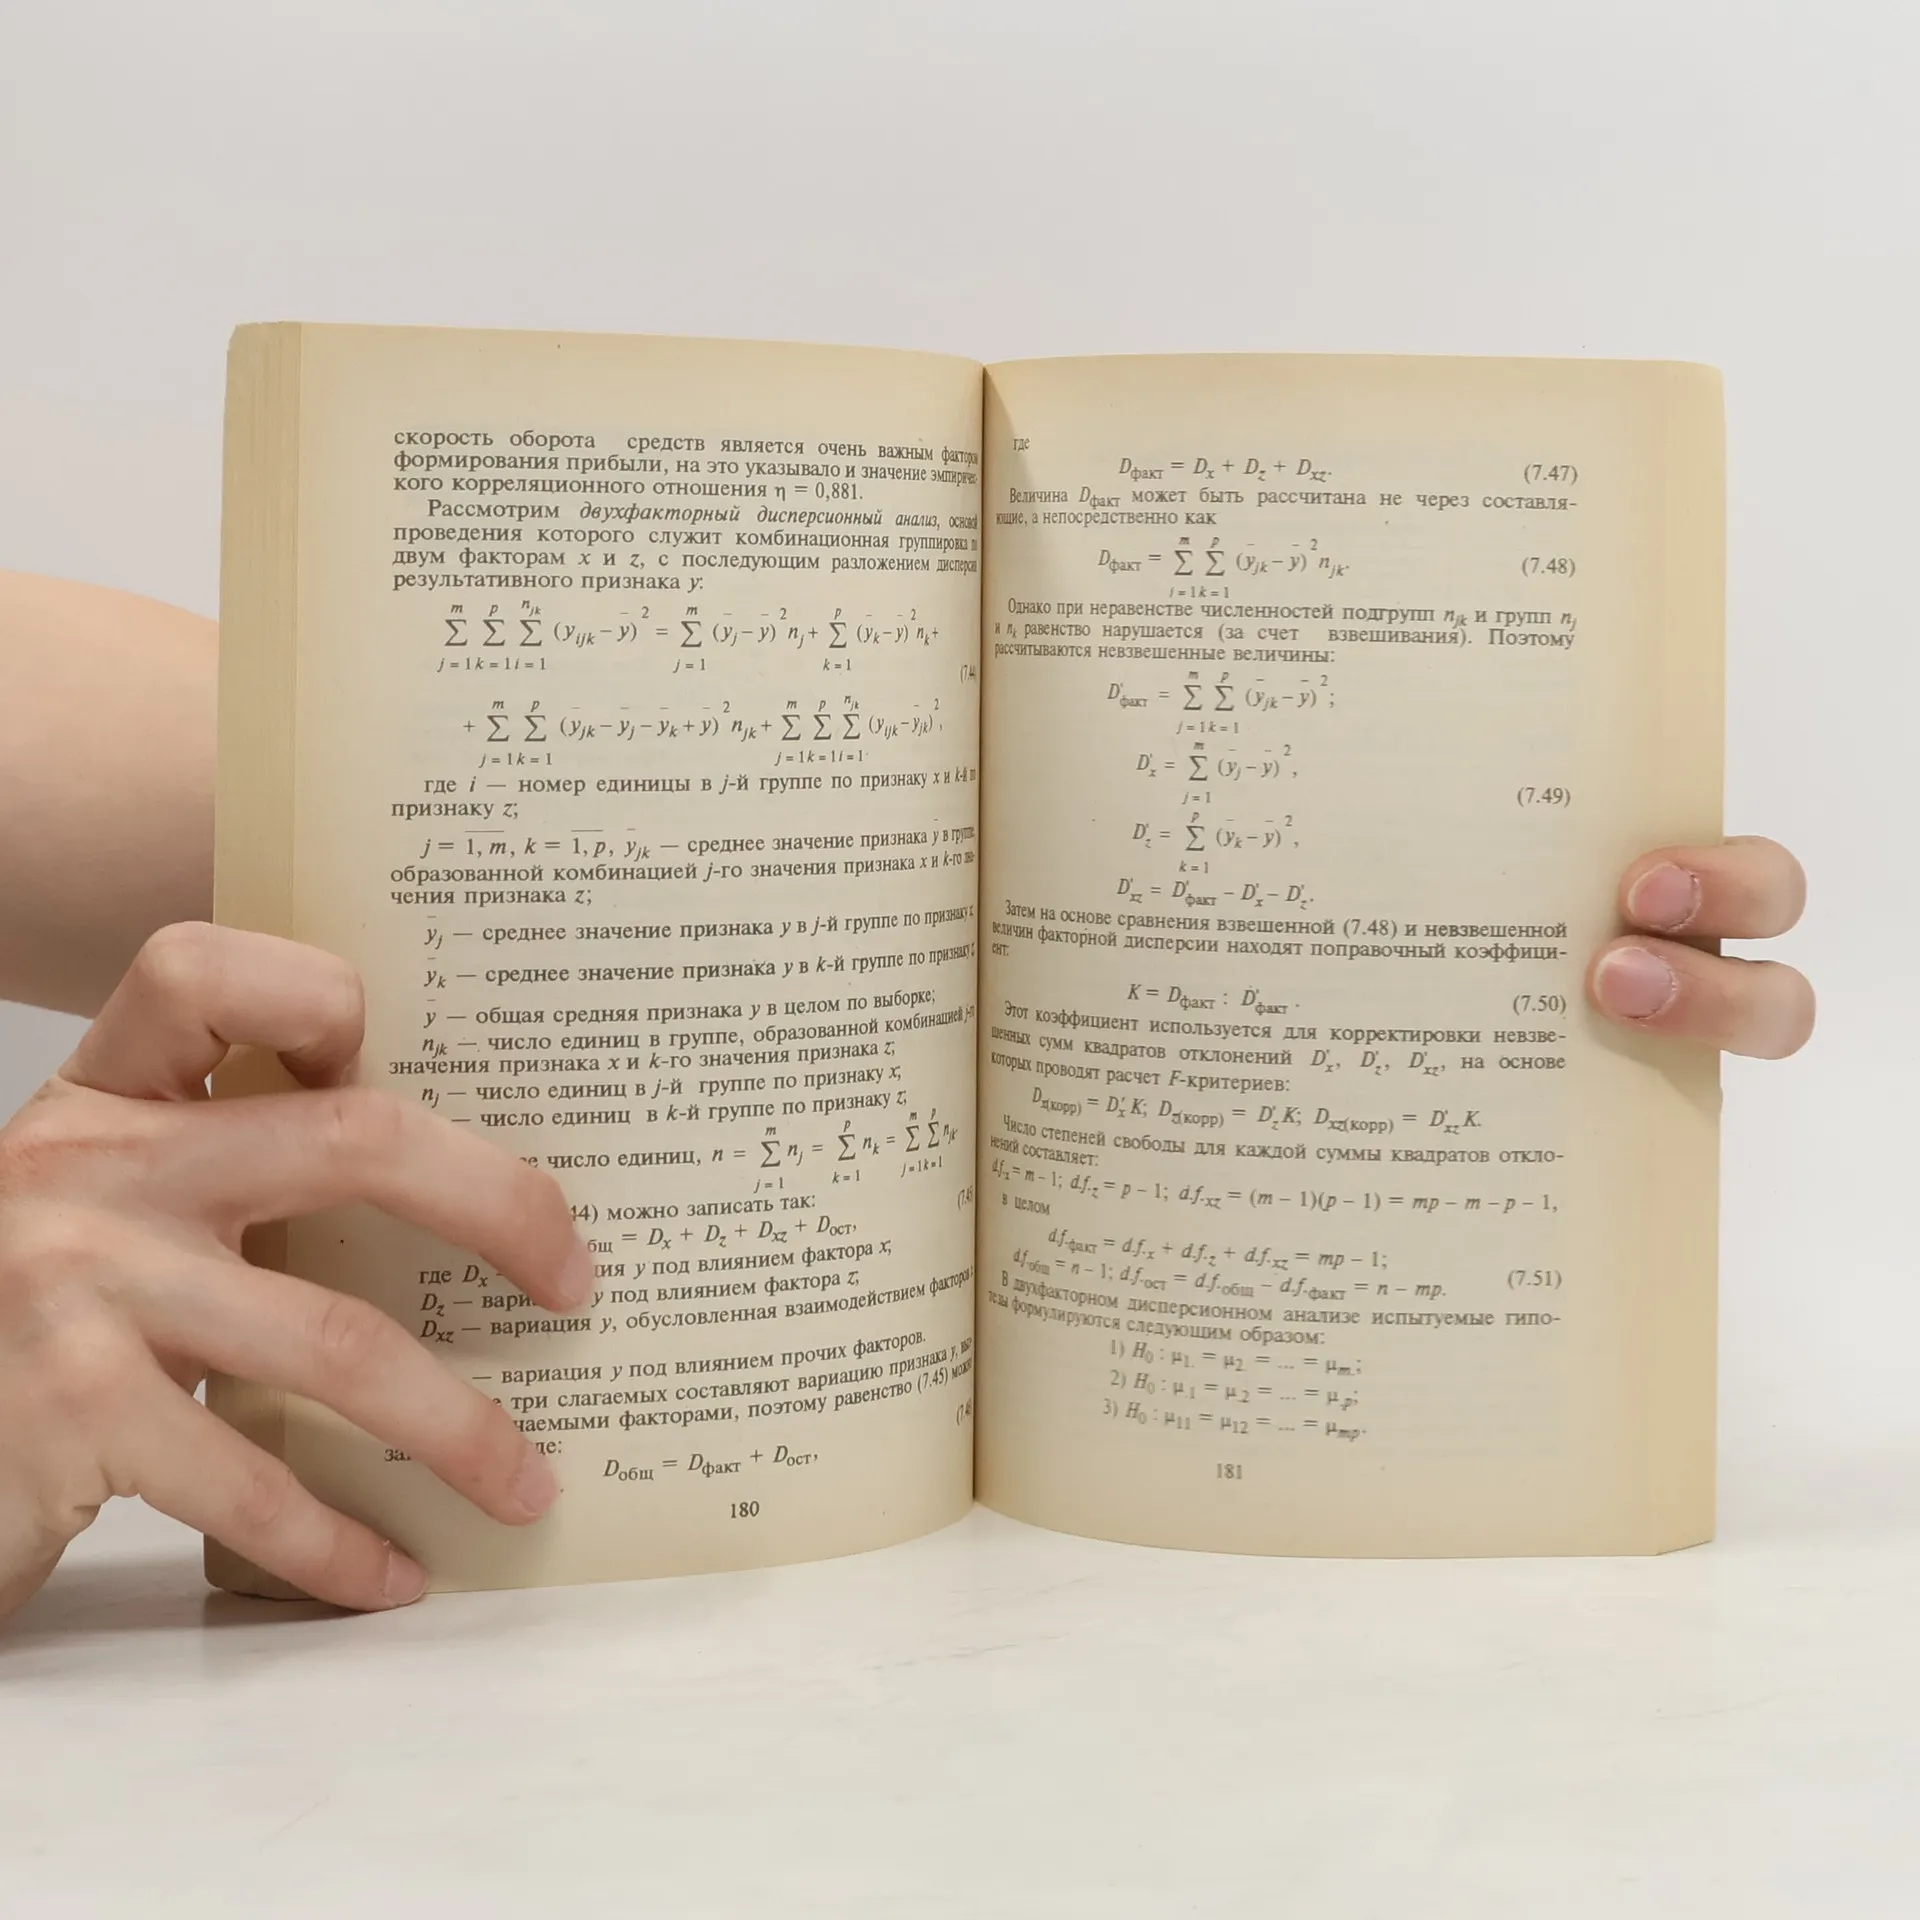 скорость оборота средств является очень важным фактором
формирования прибыли, на это указывало и значение эмпиричес-
кого корреляционного отношения η = 0,881.
Рассмотрим двухфакторный дисперсионный анализ, основой
проведения которого служит комбинационная группировка по
двум факторам x и z, с последующим разложением дисперсии
результативного признака y:
m p n_jk
∑ ∑ ∑ (y_ijk − ȳ)² = ∑ (ȳ_j − ȳ)² n_j + ∑ (ȳ_k − ȳ)² n_k +
j = 1 k = 1 i = 1 j = 1 k = 1
(7.44)
+ ∑ ∑ (ȳ_jk − ȳ_j − ȳ_k + ȳ)² n_jk + ∑ ∑ ∑ (y_ijk − ȳ_jk)²,
j = 1 k = 1 j = 1 k = 1 i = 1
где i — номер единицы в j-й группе по признаку x и k-й по
признаку z;
j = 1, m, k = 1, p, ȳ_jk — среднее значение признака y в группе,
образованной комбинацией j-го значения признака x и k-го зна-
чения признака z;
ȳ_j — среднее значение признака y в j-й группе по признаку x;
ȳ_k — среднее значение признака y в k-й группе по признаку z;
ȳ — общая средняя признака y в целом по выборке;
n_jk — число единиц в группе, образованной комбинацией j-го
значения признака x и k-го значения признака z;
n_j — число единиц в j-й группе по признаку x;
— число единиц в k-й группе по признаку z;
число единиц, n = ∑ n_j = ∑ n_k = ∑ ∑ n_jk.
j = 1 k = 1 j = 1 k = 1
44) можно записать так:
бщ = D_x + D_z + D_xz + D_ост,
где D_x — ия y под влиянием фактора x;
D_z — вари y под влиянием фактора z;
D_xz — вариация y, обусловленная взаимодействием факторов
— вариация y под влиянием прочих факторов.
три слагаемых составляют вариацию признака y,
чаемыми факторами, поэтому равенство (7.45) можно
за де:
D_общ = D_факт + D_ост,
180
где
D_факт = D_x + D_z + D_xz. (7.47)
Величина D_факт может быть рассчитана не через составля-
ющие, а непосредственно как
m p
D_факт = ∑ ∑ (ȳ_jk − ȳ)² n_jk. (7.48)
j = 1 k = 1
Однако при неравенстве численностей подгрупп n_jk и групп n_j
и n_k равенство нарушается (за счет взвешивания). Поэтому
рассчитываются невзвешенные величины:
m p
D'_факт = ∑ ∑ (ȳ_jk − ȳ)²;
j = 1 k = 1
m
D'_x = ∑ (ȳ_j − ȳ)²,
j = 1
(7.49)
p
D'_z = ∑ (ȳ_k − ȳ)²,
k = 1
D'_xz = D'_факт − D'_x − D'_z.
Затем на основе сравнения взвешенной (7.48) и невзвешенной
величин факторной дисперсии находят поправочный коэффици-
ент:
K = D_факт : D'_факт. (7.50)
Этот коэффициент используется для корректировки невзве-
шенных сумм квадратов отклонений D'_x, D'_z, D'_xz, на основе
которых проводят расчет F-критериев:
D_x(корр) = D'_x K; D_z(корр) = D'_z K; D_xz(корр) = D'_xz K.
Число степеней свободы для каждой суммы квадратов откло-
нений составляет:
d.f._x = m − 1; d.f._z = p − 1; d.f._xz = (m − 1)(p − 1) = mp − m − p − 1,
в целом
d.f._факт = d.f._x + d.f._z + d.f._xz = mp − 1;
d.f._общ = n − 1; d.f._ост = d.f._общ − d.f._факт = n − mp. (7.51)
В двухфакторном дисперсионном анализе испытуемые гипо-
тезы формулируются следующим образом:
1) H₀ : μ₁. = μ₂. = ... = μ_m.;
2) H₀ : μ.₁ = μ.₂ = ... = μ._p;
3) H₀ : μ₁₁ = μ₁₂ = ... = μ_mp.
181